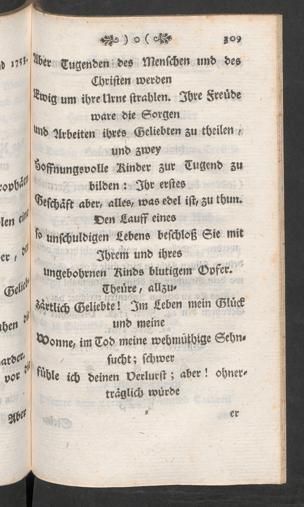 ) o ( 309
Aber Tugenden des Menschen und des
Christen werden
Ewig um ihre Urne strahlen. Ihre Freüde
ware die Sorgen
und Arbeiten ihres Geliebten zu theilen,
und zwey
Hoffnungsvolle Kinder zur Tugend zu
bilden: Ihr erstes
Geschäft aber, alles, was edel ist, zu thun.
Den Lauff eines
so unschuldigen Lebens beschloß Sie mit
Ihrem und ihres
ungebohrnen Kinds blutigem Opfer.
Theüre, allzu-
zärtlich Geliebte! Im Leben mein Glück
und meine
Wonne, im Tod meine wehmüthige Sehn-
sucht; schwer
fühle ich deinen Verlurst; aber! ohner-
träglich würde
er